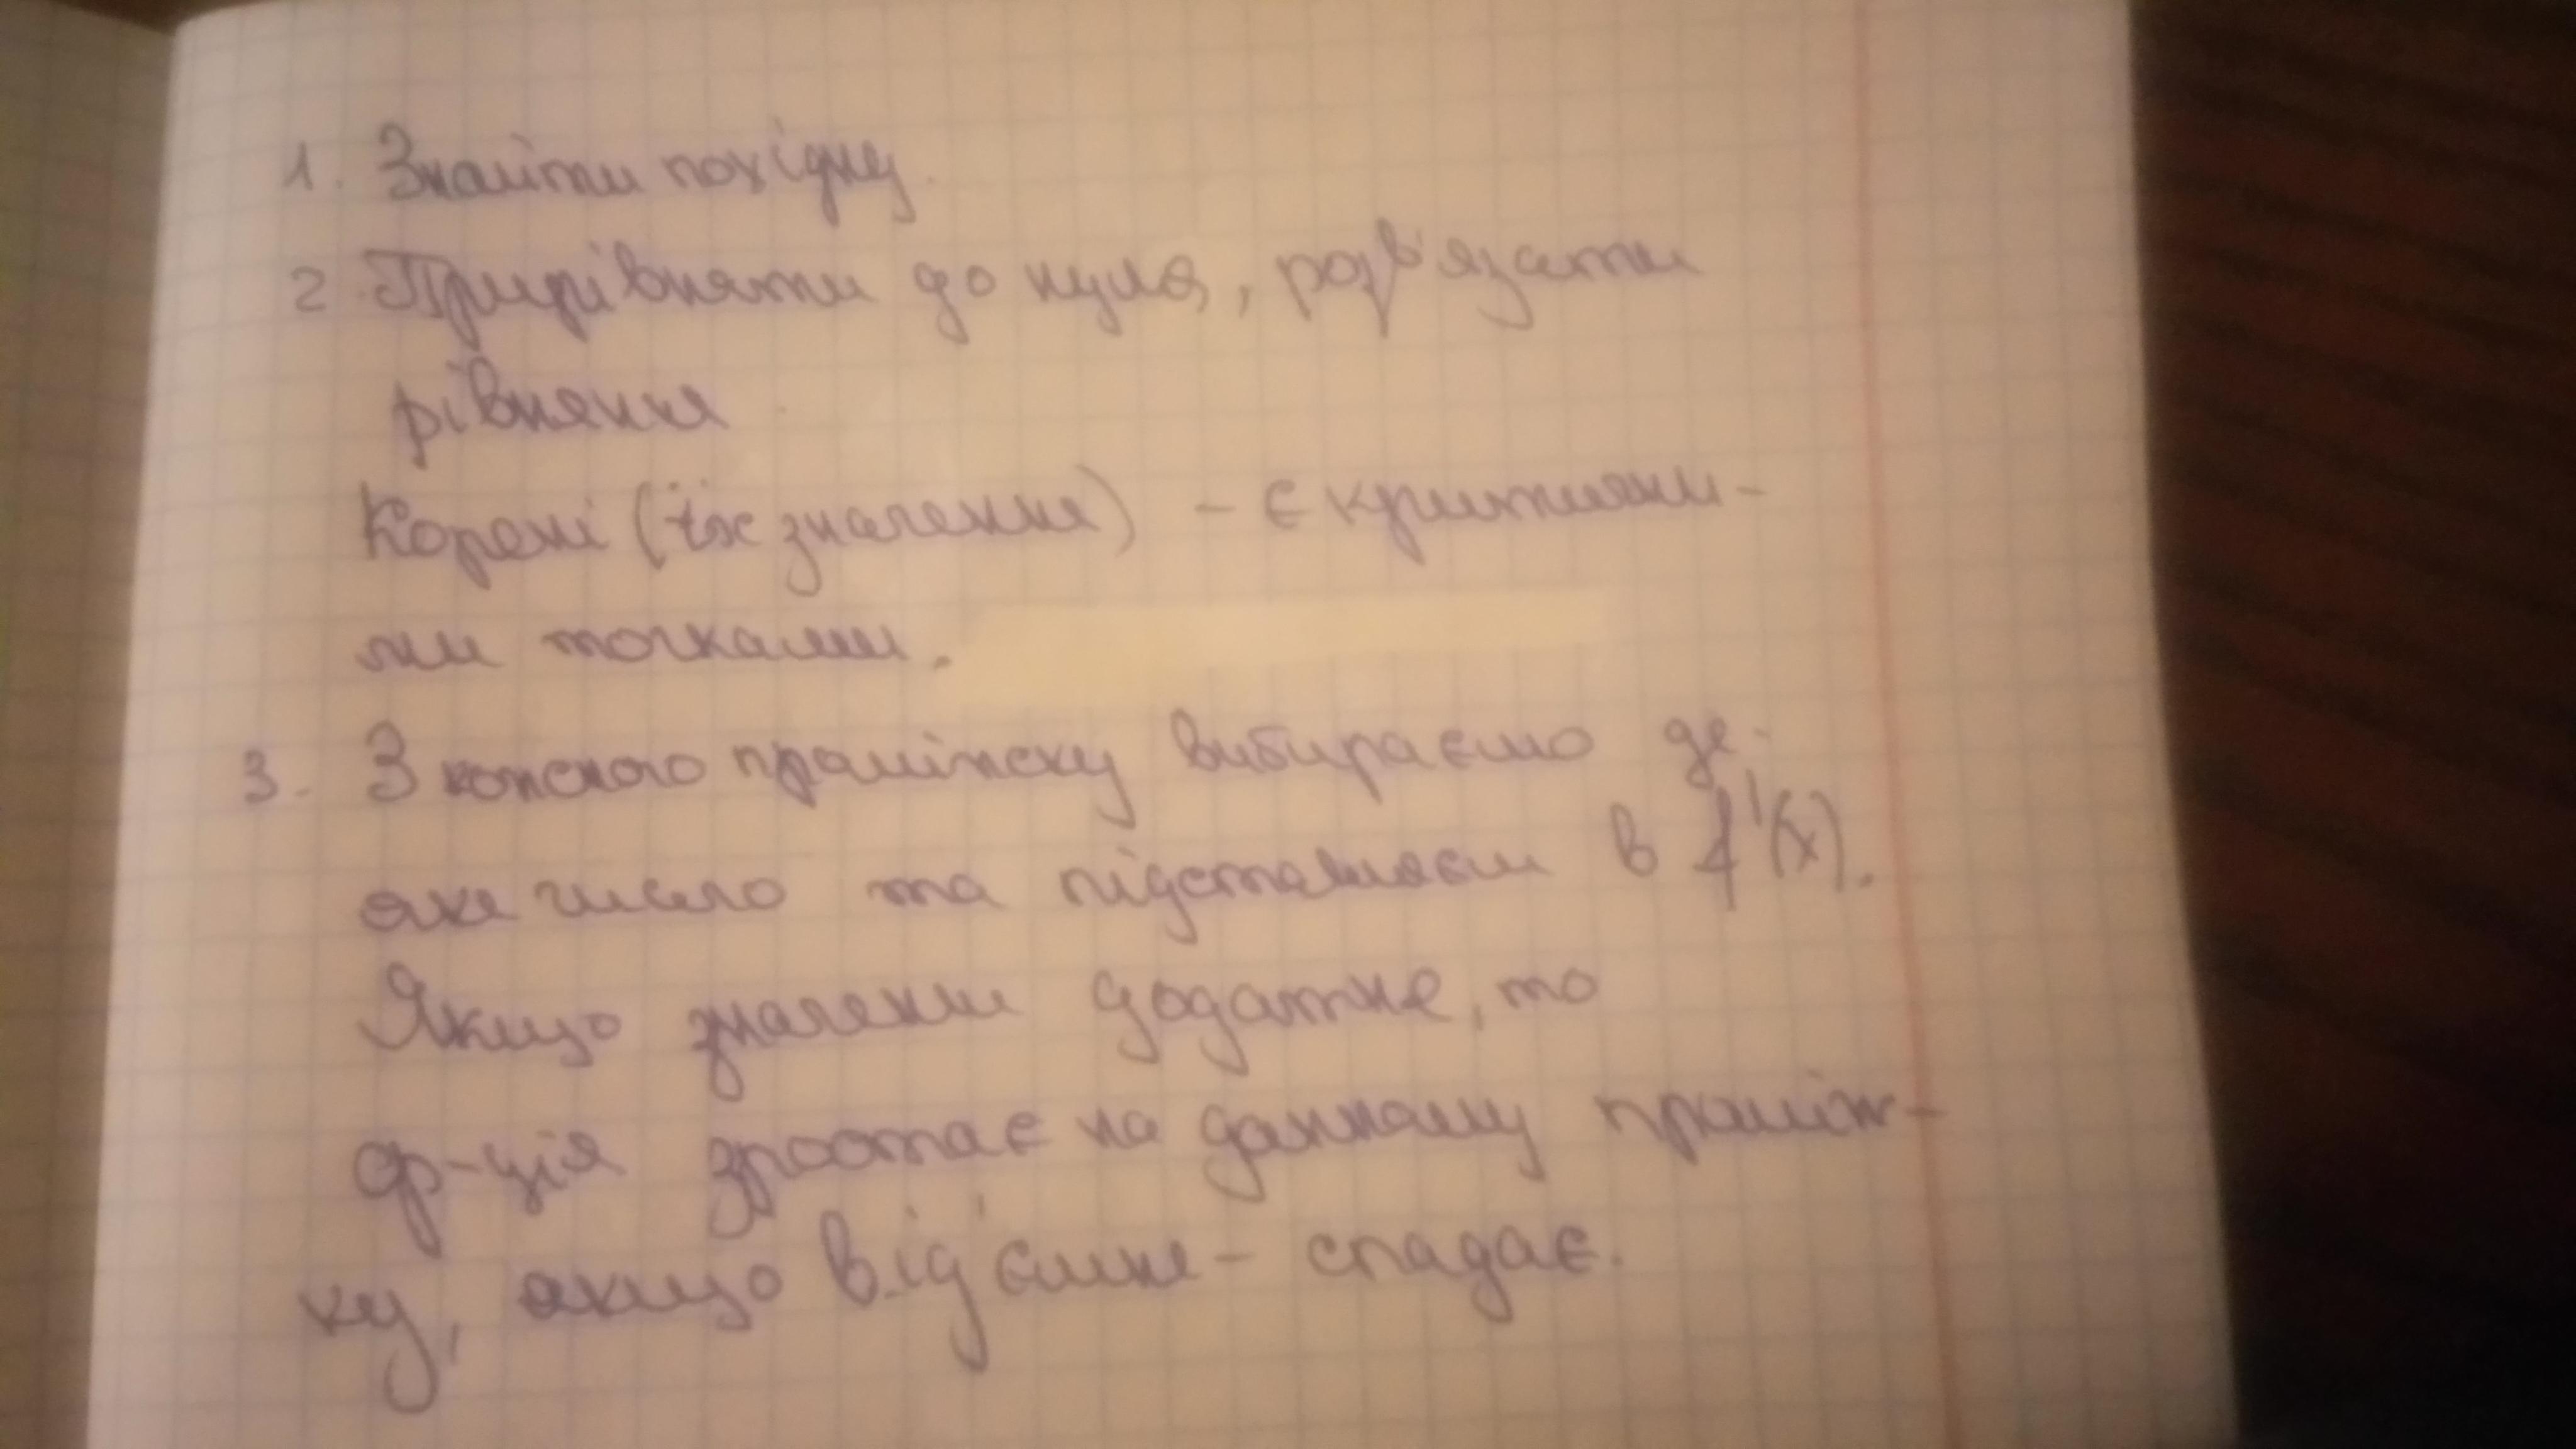 1. Знайти похідну.
2. Прирівняти до нуля, розв'язати
рівняння
Корені (їх значення) - є критични-
ми точками.
3. З кожного проміжку вибираємо де-
яке число та підставляєм в f'(x).
Якщо значення додатне, то
ф-ція зростає на данному проміж-
ку, якщо від'ємне - спадає.